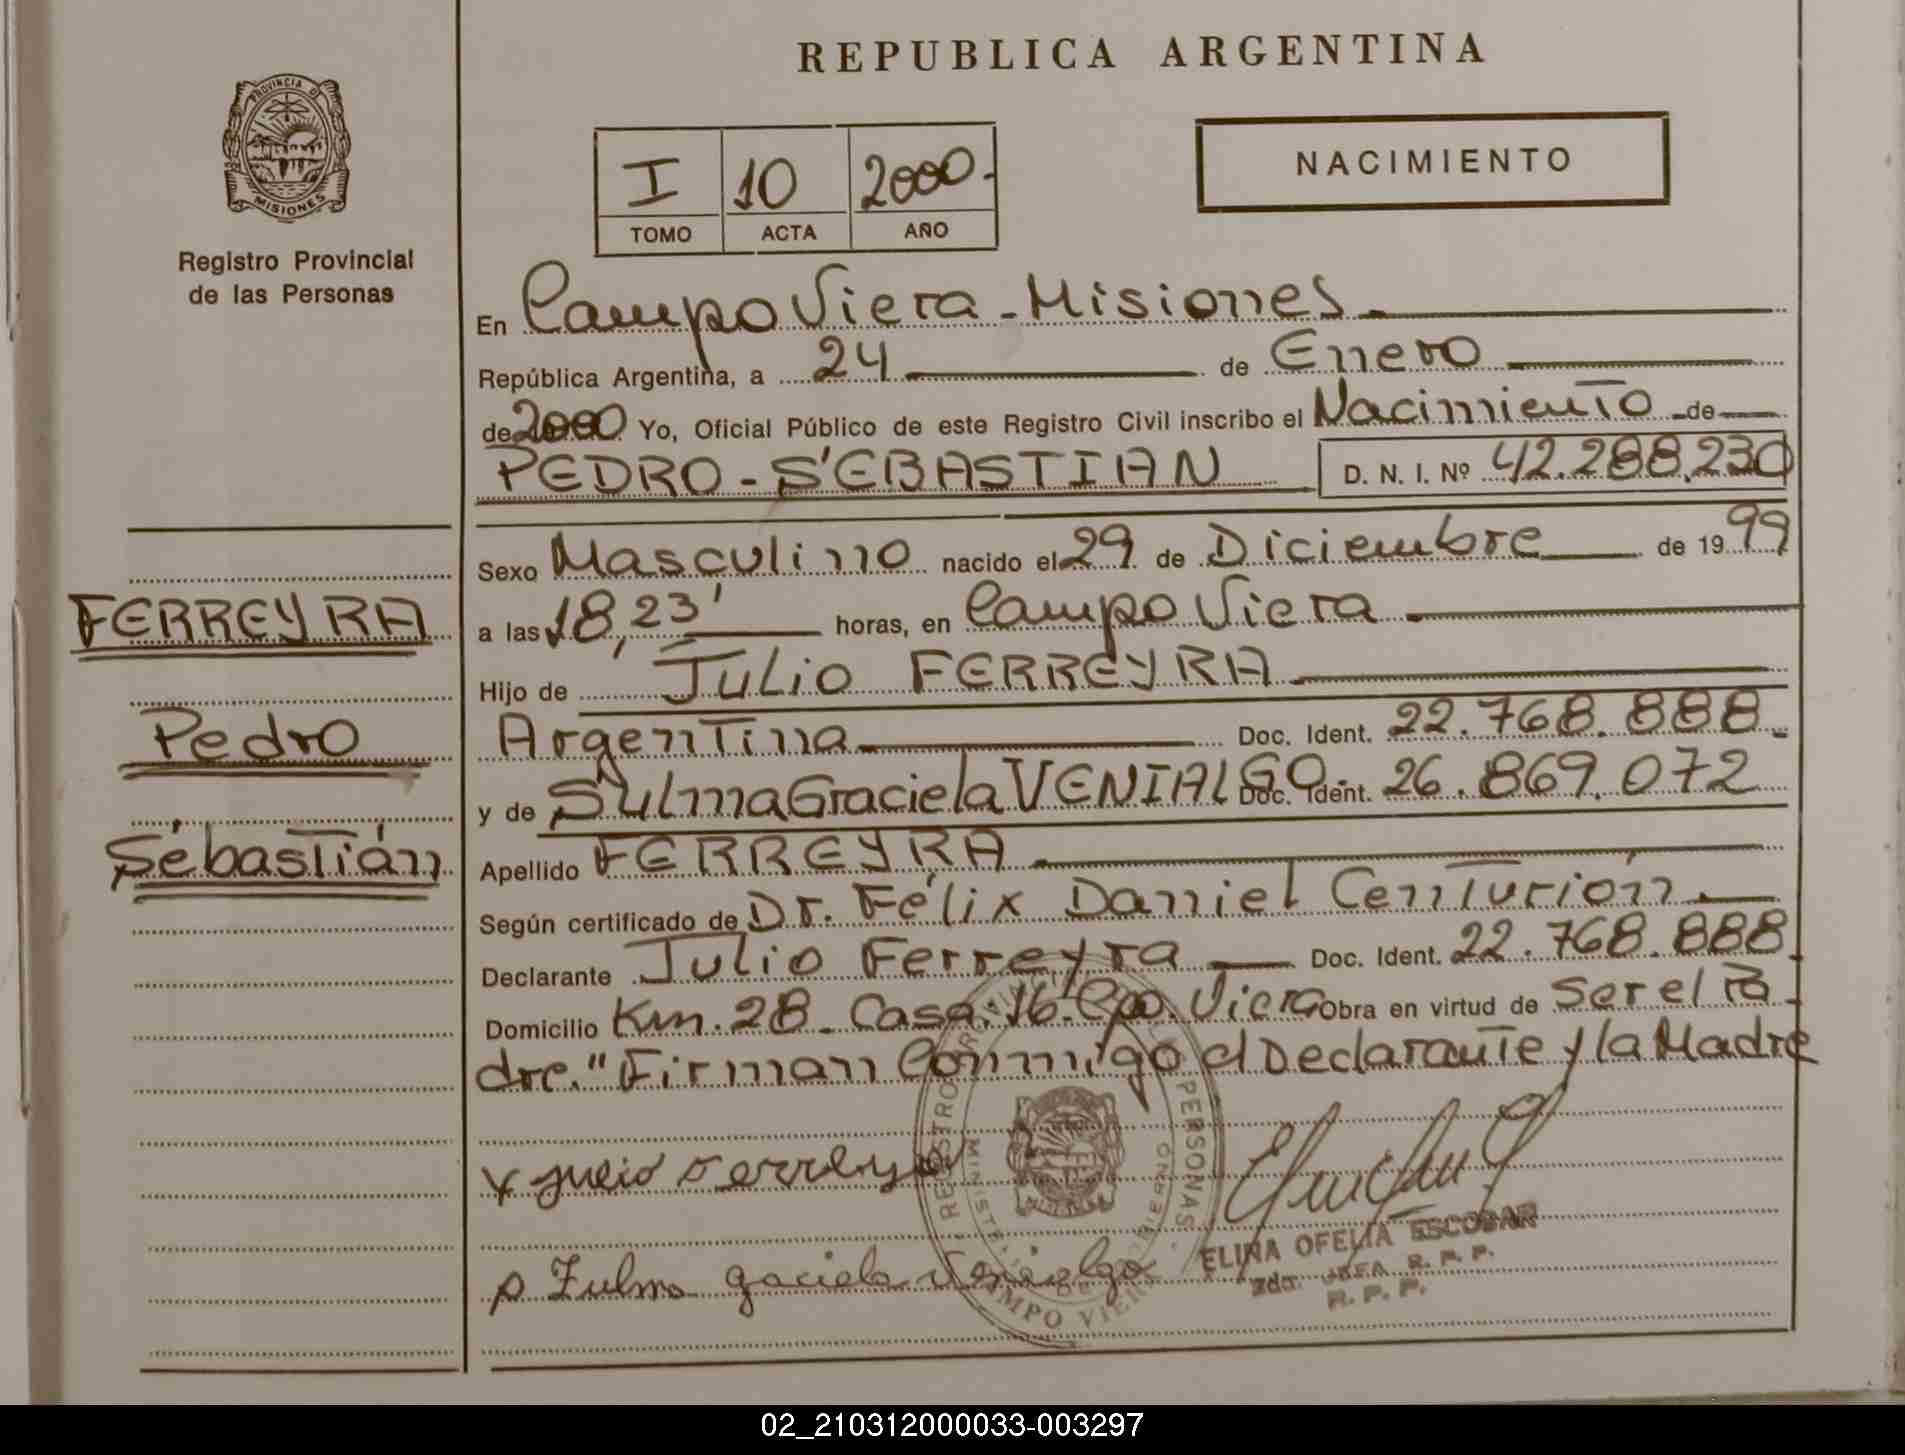 REPUBLICA ARGENTINA
PROVINCIA D
MISIONES
Registro Provincial
de las Personas
I 10 2000.-
TOMO ACTA AÑO
NACIMIENTO
En Campo Viera - Misiones.
República Argentina, a 24 de Enero
de 2000 Yo, Oficial Público de este Registro Civil inscribo el Nacimiento - de
PEDRO - SEBASTIAN D. N. I. Nº 42.288.230
Sexo Masculino nacido el 29 de Diciembre de 1999
a las 18,23' horas, en Campo Viera
Hijo de Julio FERREYRA
Argentina Doc. Ident. 22.768.888.-
y de Sulma Graciela VENIALGO.- Doc. Ident. 26.869.072
Apellido FERREYRA
Según certificado de Dr. Félix Daniel Centurión.
Declarante Julio Ferreyra Doc. Ident. 22.768.888.
Domicilio Km. 28 - Casa. 16. Cpo. Viera Obra en virtud de Ser el Pa-
dre." Firman Conmigo el Declarante y la Madre
FERREYRA
Pedro
Sébastián
x julio Ferreyra
p Zulma graciela Venialgo
ELINA OFELIA ESCOBAR
2da. JEFA R. P. P.
R. P. P.
02_210312000033-003297